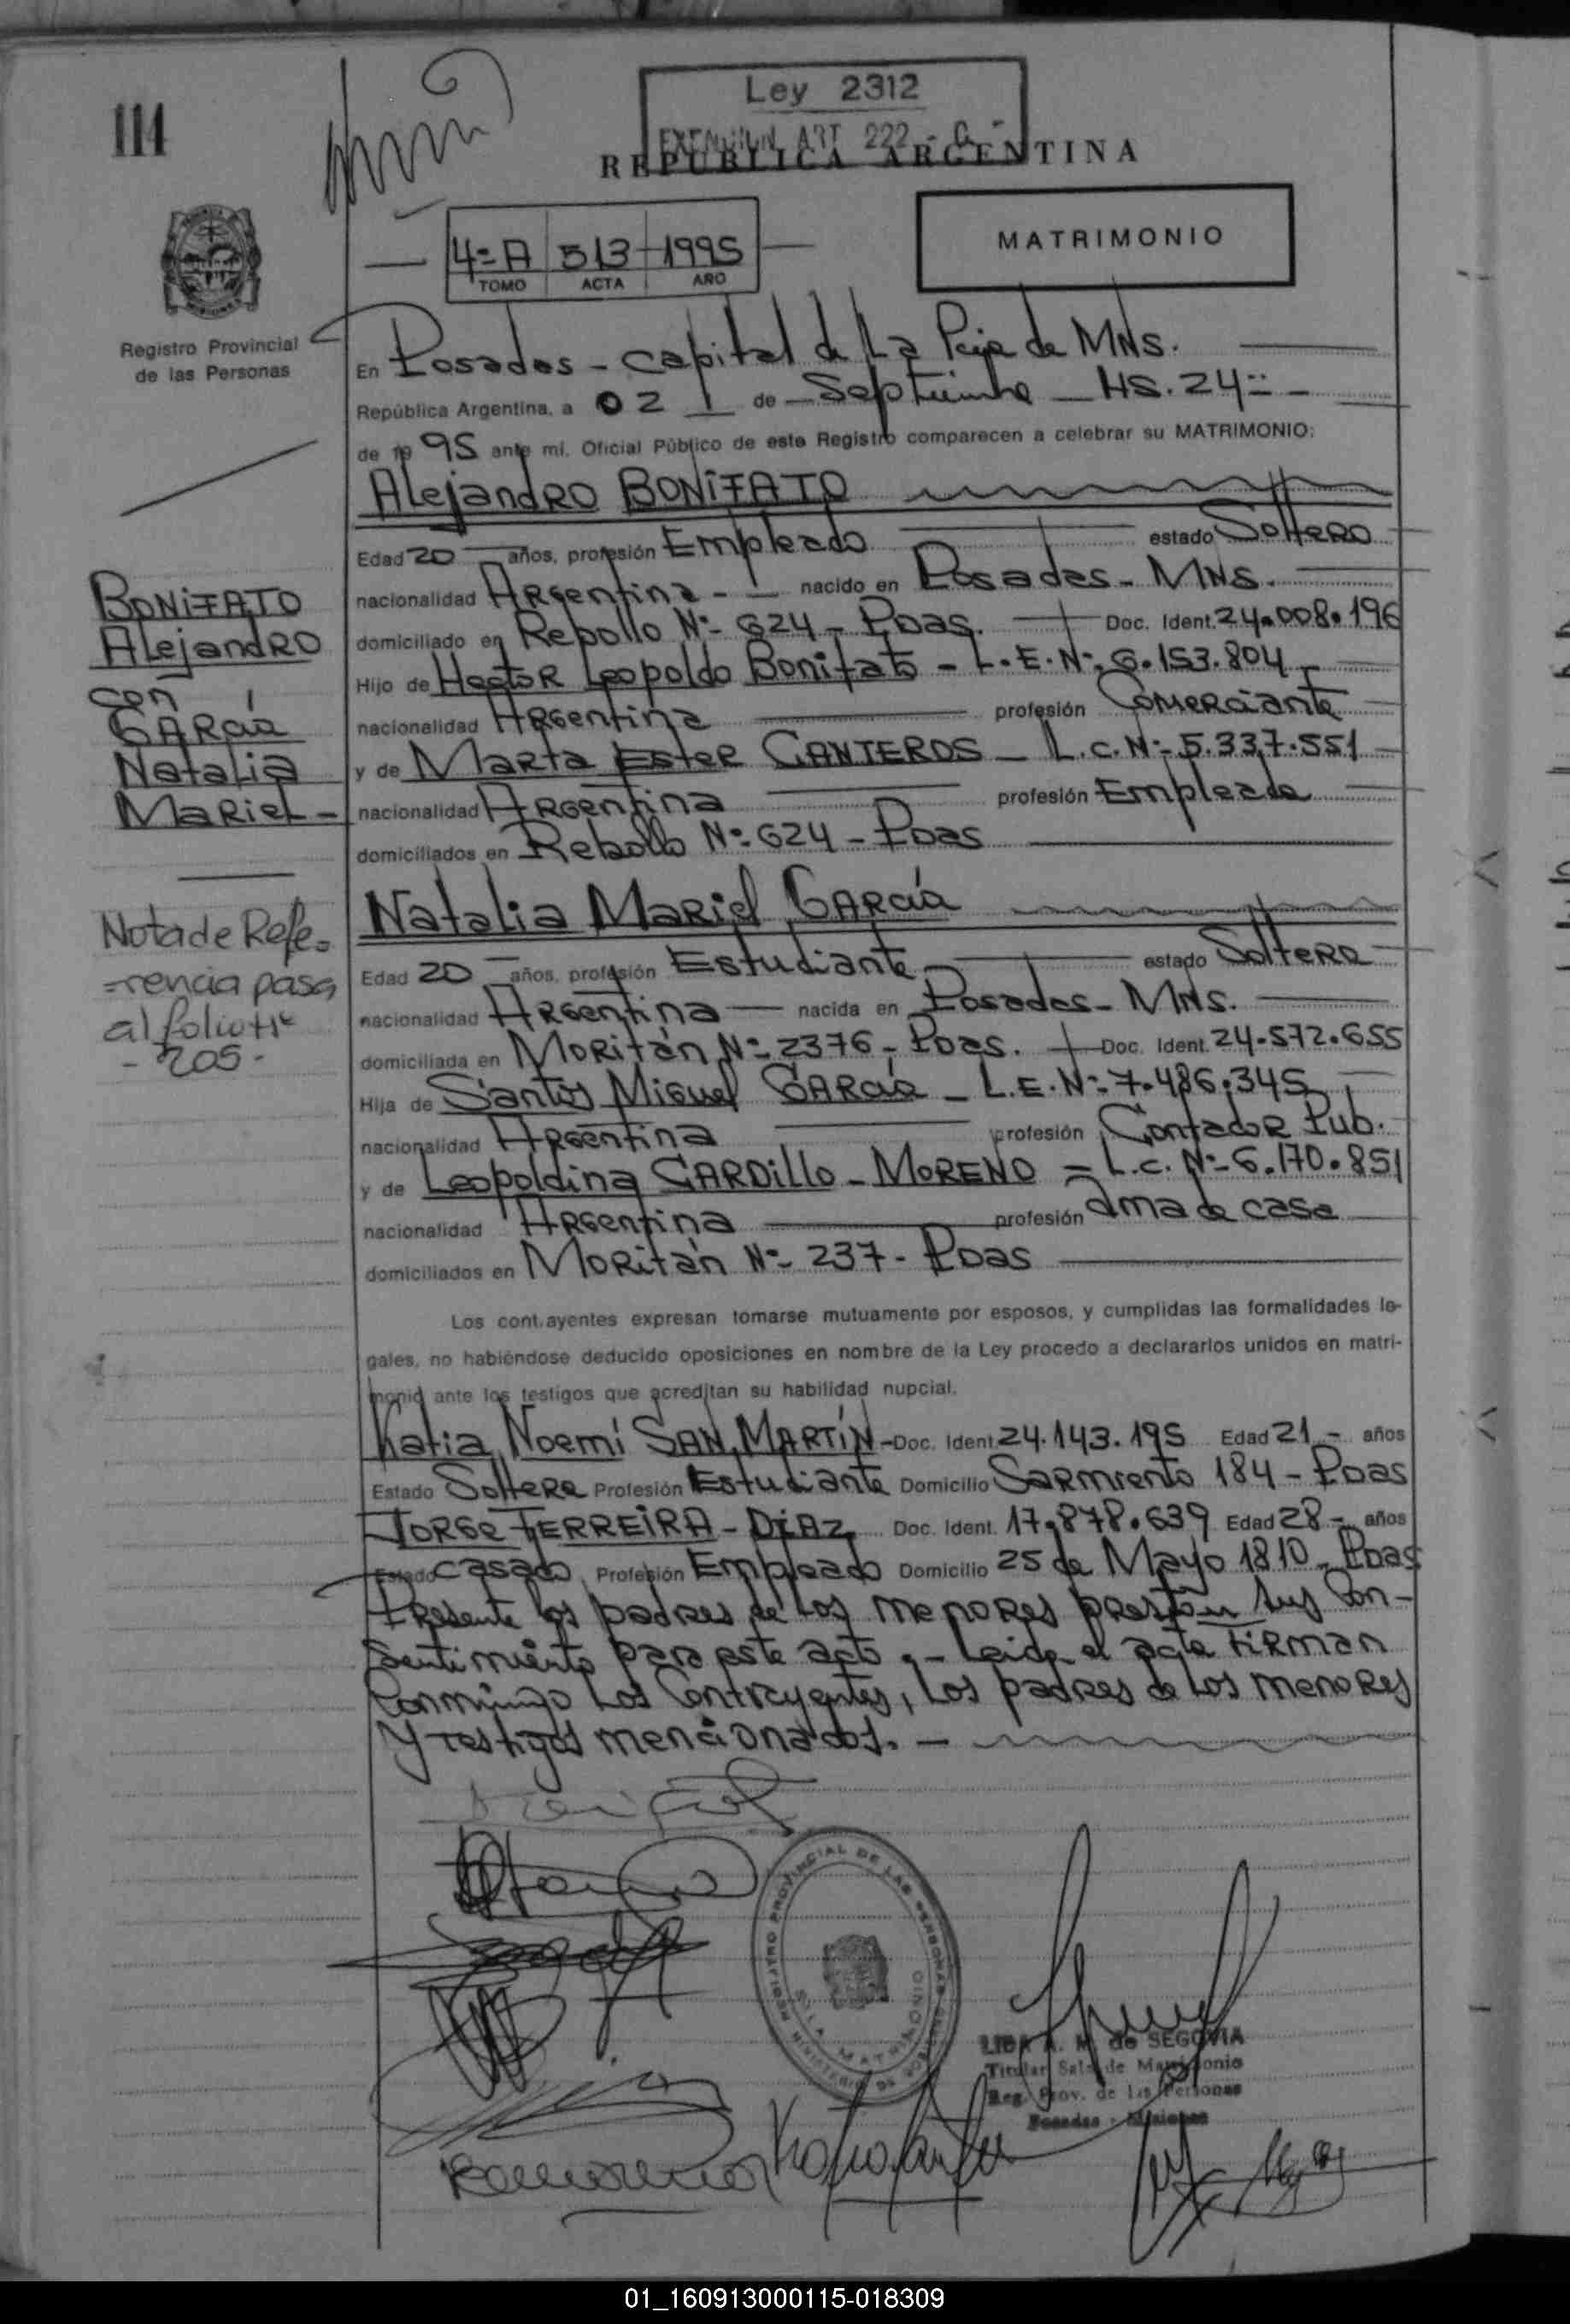 114
Ley 2312
EXENCION ART 222 - C. -
REPUBLICA ARGENTINA
4=A 513 1995
TOMO ACTA AÑO
MATRIMONIO
Registro Provincial
de las Personas
En Posadas - Capital de La Pcia de MNS.
República Argentina, a 02 de Septiembre HS. 24
de 1995 ante mi, Oficial Público de este Registro comparecen a celebrar su MATRIMONIO:
Alejandro BONIFATO
Edad 20 años, profesión Empleado estado Soltero
nacionalidad Argentina - nacido en Posadas - MNS.
domiciliado en Rebollo Nº 624 - Pdas. Doc. Ident. 24.008.196
Hijo de Hector Leopoldo Bonifato - L.E.Nº 6.153.804
nacionalidad Argentina profesión Comerciante
y de Marta Ester CANTEROS - L.C.Nº 5.337.551
nacionalidad Argentina profesión Empleada
domiciliados en Rebollo Nº 624 - Pdas
BONIFATO
Alejandro
con
García
Natalia
Mariel -
Natalia Mariel García
Edad 20 años, profesión Estudiante estado Soltera
nacionalidad Argentina nacida en Posadas - MNS.
domiciliada en Moritán Nº 2376 - Pdas. Doc. Ident. 24.572.655
Hija de Santos Miguel García - L.E.Nº 7.486.345
nacionalidad Argentina profesión Contador Pub.
y de Leopoldina GARDILLO - MORENO = L.C. Nº 6.170.851
nacionalidad Argentina profesión Ama de casa
domiciliados en Moritán Nº 237 - Pdas
Nota de Refe=
=rencia pasa
al folio
- 205 -
Los contrayentes expresan tomarse mutuamente por esposos, y cumplidas las formalidades le-
gales, no habiéndose deducido oposiciones en nombre de la Ley procedo a declararlos unidos en matri-
monio ante los testigos que acreditan su habilidad nupcial.
Katia Noemí SAN MARTÍN - Doc. Ident 24.143.195 Edad 21 - años
Estado Soltera Profesión Estudiante Domicilio Sarmiento 184 - Pdas
Jorge FERREIRA - DIAZ Doc. Ident. 17.878.639 Edad 28 - años
Estado Casado Profesión Empleado Domicilio 25 de Mayo 1810 - Pdas
Presente los padres de los menores prestan sus Con-
sentimiento para este acto .- Leida el acta firman
Conmigo Los Contrayentes, Los padres de los menores
y testigos mencionados. -
REGISTRO PROVINCIAL DE LAS PERSONAS
MINISTERIO DE GOBIERNO
SALA MATRIMONIO
LIDA A. M. de SEGOVIA
Titular Sala de Matrimonio
Reg. Prov. de las Personas
Posadas - Misiones
01_160913000115-018309